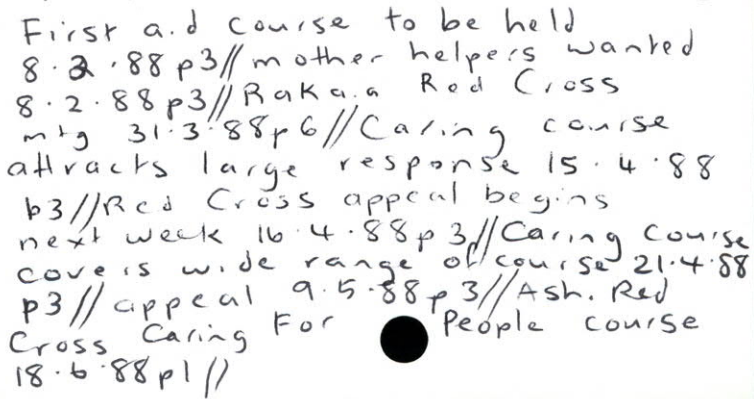 First a.d course to be held
8.2.88 p3// mother helpers wanted
8.2.88 p3// Rakaia Red Cross
mtg 31.3.88 p6// Caring course
attracts large response 15.4.88
p3// Red Cross appeal begins
next week 16.4.88 p3// Caring course
covers wide range of course 21.4.88
p3// appeal 9.5.88 p3// Ash. Red
Cross Caring For People course
18.6.88 p1 //